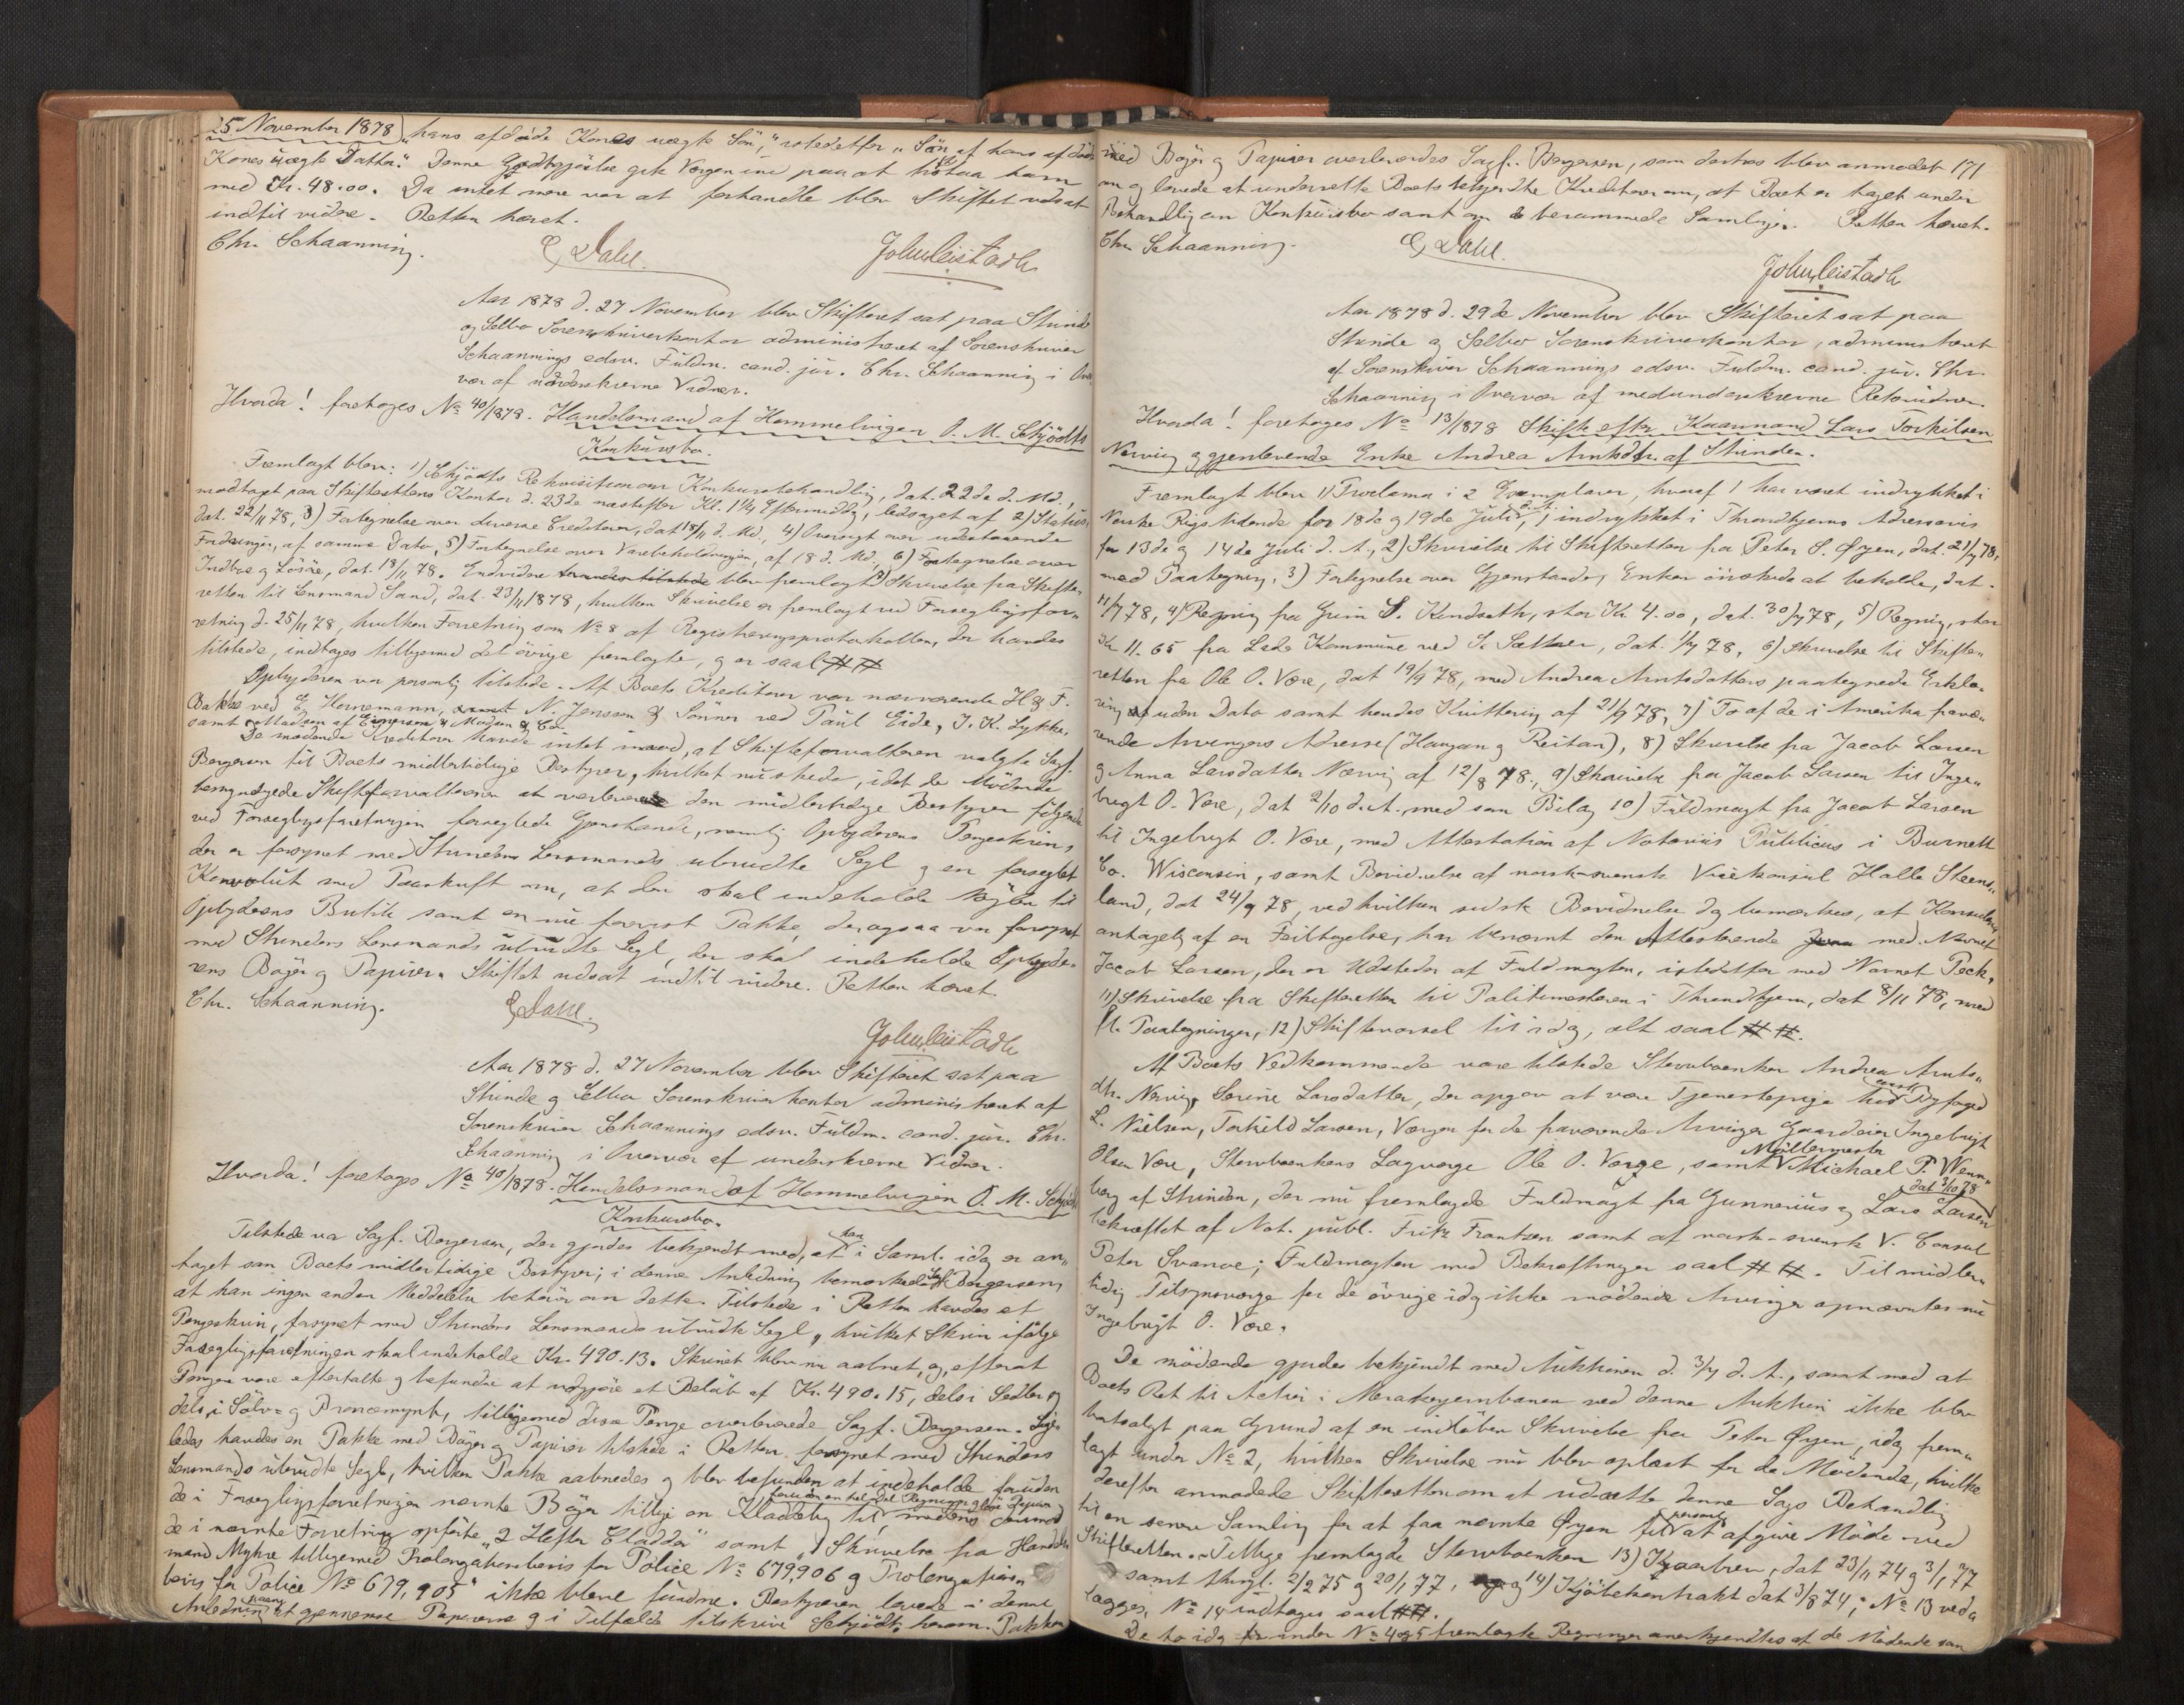 25 November 1878 „hans afdøde Kones uægte Søn," istedetfor „Søn af hans afdøde
Kones uægte Datter." Denne Godtgjørelse gik Værgen ind paa at tilstaa ham
med Kr. 48.00. Da intet mere var at forhandle blev Skiftet udsat
indtil videre. Retten hævet.
Chr. Schaanning. E Dahl. John Leistadh
Aar 1878 d. 27 November blev Skifteret sat paa Strinde
og Selbo Sorenskriverkontor administreret af Sorenskriver
Schaannings edsv. Fuldm. cand. jur. Chr. Schaanning i Over
vær af underskrevne Vidner.
Hvorda! foretoges No 40/1878. Handelsmand af Hommelvigen O. M. Schjødts
Konkursbo.
Fremlagt blev: 1) Schjødts Rekvisition om Konkursbehandling, dat. 22de d. Md.,
modtaget paa Skifterettens Kontor d. 23de næstefter Kl. 1¼ Eftermiddag, ledsaget af 2) Status,
dat. 22/11 78, 3) Fortegnelse over diverse Creditorer, dat 18/11 d. Md., 4) Oversigt over udestaaende
Fordringer, af samme Dato, 5) Fortegnelse over Varebeholdningen, af 18 d. Md., 6) Fortegnelse over
Indboe og Løsøre, dat. 18/11 78. Endvidere blev fremlagt 7) Skrivelse fra Skifte-
retten til Lensmand Sand, dat. 23/11 1878, hvilken Skrivelse er fremlagt ved Forseglingsfor-
retning d. 25/11 78, hvilken Forretning som No 8 af Registreringsprotokollen, der havdes
tilstede, indtages tilligemed det øvrige fremlagte, og er saal. ## 
Opbyderen var personlig tilstede. Af Boets Kreditorer var nærværende H & F.
Bakke ved E. Hornemann, N. Jenssen & Sønner ved Paul Eide, J. K. Lykke,
samt Madsen af Madsen & Co.
De mødende Kreditorer havde intet imod, at Skifteforvalteren valgte Sagf.
Bergersen til Boets midlertidige Bestyrer, hvilket nu skede, idet de Mødende
bemyndigede Skifteforvalteren at overlevere den midlertidige Bestyrer følgende
ved Forseglingsforretningen forseglede Gjenstande, nemlig Opbyderens Pengeskrin,
der er forsynet med Strindens Lensmands ubrudte Segl og en forseglet
Konvolut med Paaskrift om, at den skal indeholde Nøglen til
Opbyderens Butik samt en nu forevist Pakke, der ogsaa var forsynet
med Strindens Lensmands ubrudte Segl, der skal indeholde Opbyde-
rens Bøger og Papirer. Skiftet udsat indtil videre. Retten hævet.
Chr. Schaanning. E Dahl. John Leistadh
Aar 1878 d. 27 November blev Skifteret sat paa
Strinde og Selbo Sorenskriverkontor administreret af
Sorenskriver Schaannings edsv. Fuldm. cand. jur. Chr.
Schaanning i Overvær af underskrevne Vidner.
Hvorda! foretoges No 40/1878. Handelsmand af Hommelvigen O. M. Schjødts
Konkursbo.
Tilstede var Sagf. Bergersen, der gjordes bekjendt med, at han i Saml. idag er an-
taget som Boets midlertidige Bestyrer; i denne Anledning bemærkede Sagf. Bergersen,
at han ingen anden Meddelelse behøver om dette. Tilstede i Retten havdes et
Pengeskrin, forsynet med Strindens Lensmands ubrudte Segl, hvilket Skrin ifølge
Forseglingsforretningen skal indeholde Kr. 490.13. Skrinet blev nu aabnet, og, efterat
Pengene vare eftertalte og befundne at udgjøre et Beløb af Kr. 490.15, dels i Sedler og
dels i Sølv- og Broncemynt, tilligemed disse Penge overleverede Sagf. Bergersen. Lige-
ledes havdes en Pakke med Bøger og Papirer tilstede i Retten forsynet med Strindens
Lensmands ubrudte Segl, hvilken Pakke aabnedes og blev befunden at indeholde foruden
de i Forseglingsforretningen nævnte Bøger tillige en Kladdebog til, foruden en hel Del Regninger og løse Papirer medens
de i nævnte Forretning opførte „2 Hefter Cladder" samt „1 Skrivelse fra Handels-
mand Myhre tilligemed Prolongationsbevis for Police No 679,906 og Prolongations-
bevis for Police No 679,905" ikke bleve fundne. Bestyreren lovede i denne
Anledning at gjennemse Papirerne og i Tilfælde tilskrive Schjødt herom. Pakken
med Bøger og Papirer overleveredes Sagf. Bergersen, som derhos blev anmodet 171
om og lovede at underrette Boets bekjendte Kreditorer om, at Boet er taget under
Behandling som Konkursbo samt om de berammede Samlinger. Retten hævet.
Chr Schaanning. E Dahl. John Leistadh
Aar 1878 d. 29de November blev Skifteret sat paa
Strinde og Selbo Sorenskriverkontor, administreret
af Sorenskriver Schaannings edsv. Fuldm. cand. jur. Chr.
Schaanning i Overvær af medunderskrevne Retsvidner.
Hvorda! foretoges No 13/1878 Skifte efter Kaarmand Lars Torkilsen
Nervig og gjenlevende Enke Andrea Arntsdtr. af Strinden.
Fremlagt blev 1) Proclama i 2 Exemplarer, hvoraf 1 har været indrykket i
Norske Rigstidende for 18de og 19de Juli d. A., 1 indrykket i Throndhjems Adresseavis
for 13de og 14de Juli d. A., 2) Skrivelse til Skifteretten fra Peter S. Øyen, dat. 21/7 78,
med Paategning, 3) Fortegnelse over Gjenstande, Enken ønskede at beholde, dat.
11/7 78, 4) Regning fra Grim S. Kindseth, stor Kr. 4.00, dat. 30/7 78, 5) Regning, stor
Kr 11.65 fra Lade Kommune ved S. Sæther, dat. 1/7 78, 6) Skrivelse til Skifte-
retten fra Ole O. Være, dat 19/9 78, med Andrea Arntsdatters paategnede Erklæ-
ring uden Dato samt hendes Kvittering af 21/9 78, 7) To af de i Amerika fravæ-
rende Arvingers Adresse (Haugan og Reitan), 8) Skrivelse fra Jacob Larsen
og Anna Larsdatter Nervig af 12/8 78., 9) Skrivelse fra Jacob Larsen til Inge-
brigt O. Være, dat 2/10 d. A., med som Bilag 10) Fuldmagt fra Jacob Larsen
til Ingebrigt O. Være, med Attestation af Notarius Publicus i Burnett
Co. Wisconsin, samt Bevidnelse af norsk-svensk Vicekonsul Halle Steens-
land, dat 24/9 78, ved hvilken sidste Bevidnelse dog bemærkes, at Konsulen,
antagelig af en Feiltagelse, har benævnt den Attesterende med Navnet
Jacob Larsen, der er Udsteder af Fuldmagten, istedetfor med Navnet Peck,
11) Skrivelse fra Skifteretten til Politimesteren i Throndhjem, dat 8/11 78, med
fl. Paategninger, 12) Skiftevarsel til idag, alt saal ##.
Af Boets Vedkommende vare tilstede Stervboenken Andrea Arnts-
dtr. Nervig, Serine Larsdatter, der opgav at være Tjenestepige hos Byfoged
L. Nielsen, Torkild Larsen, Værgen for de fraværende Arvinger Gaardeier Ingebrigt
Olsen Være, Stervboenkens Lagværge Ole O. Værge, samt Møllermester Michael P. Wenn-
berg af Strinden, der nu fremlagde Fuldmagt fra Gunnerius og Lars Larsen dat 3/10 78
bekræftet af Not. publ. Fritz Frantzen samt af norsk-svensk V. Consul
Peter Svanoe; Fuldmagten med Bekræftninger saal ##. Til midler-
tidig Tilsynsværge for de øvrige idag ikke mødende Arvinger opnævntes nu
Ingebrigt O. Være.
De mødende gjordes bekjendt med Auktionen d. 3/7 d. A., samt med at
Boets Ret til Actier i Merakerjernbanen ved denne Auktion ikke blev
bortsolgt paa Grund af en indløben Skrivelse fra Peter Øyen, idag frem-
lagt under No 2, hvilken Skrivelse nu blev oplæst for de Mødende, hvilke
derefter anmodede Skifteretten om at udsætte denne Sags Behandling
til en senere Samling for at faa nævnte Øyen til personlig at afgive Møde ved
Skifteretten. Tillige fremlagde Stervboenken 13) Kaarbrev, dat 23/11 74 og 3/1 77
samt thingl. 2/2 75 og 20/1 77, og 14) Kjøbekontrakt dat 3/8 74; No 13 ved-
lægges, No 14 indtages saal ##.
De to idag under No 4 og 5 fremlagte Regninger anerkjendtes af de Mødende som